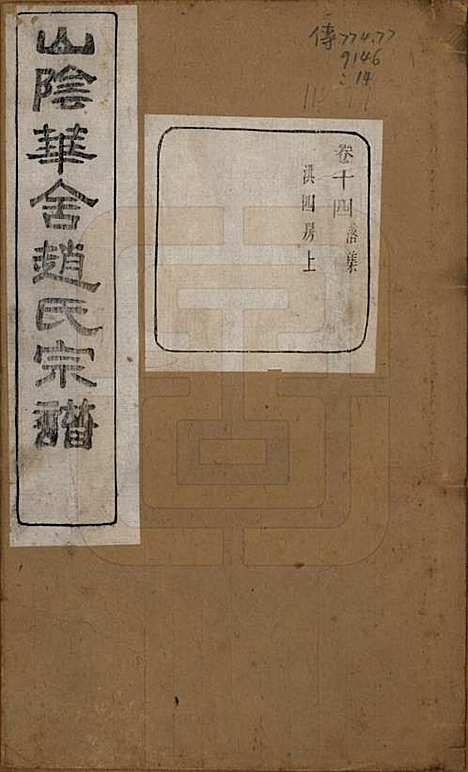 山陰華舍趙氏宗譜
卷十四 洛集
洪四房上
傳 774.77
9146
: 14